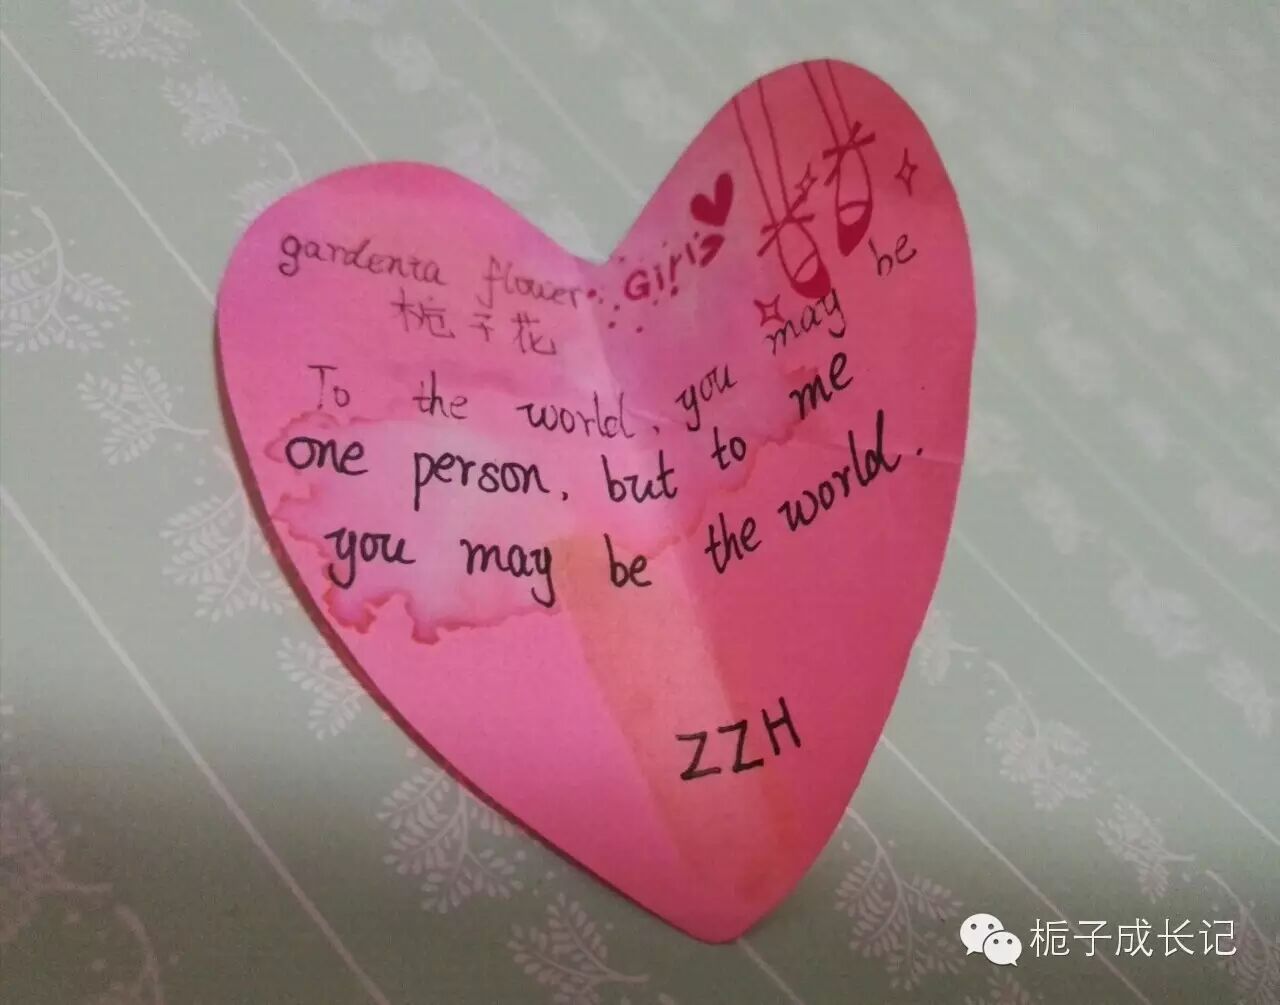 gardenia flower
Girls
栀子花
To the world, you may be
one person, but to me
you may be the world.
ZZH
栀子成长记